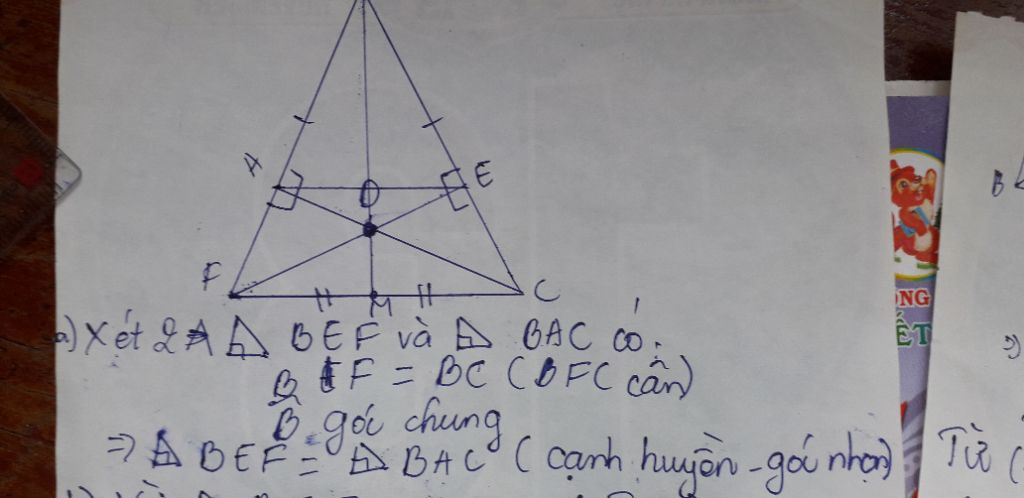 A
E
D
F
M
C
a) Xét 2 ⊿ BEF và ⊿ BAC có:
BF = BC (BFC cân)
B̂ góc chung
=> ⊿ BEF = ⊿ BAC (cạnh huyền - góc nhọn)
B
ONG
ẾT
=>)
Từ (